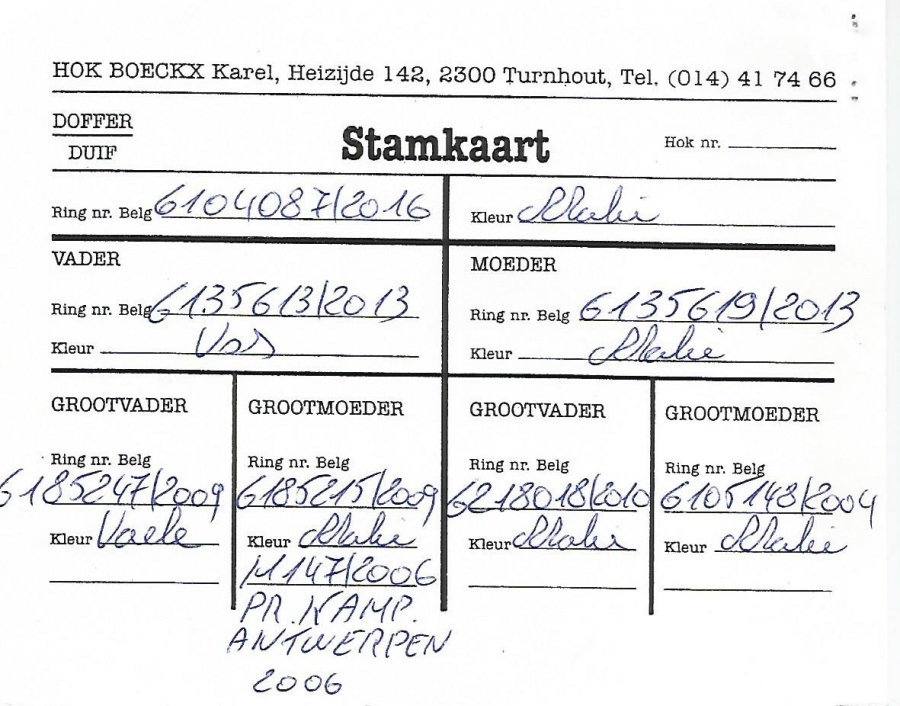 HOK BOECKX Karel, Heizijde 142, 2300 Turnhout, Tel. (014) 41 74 66
DOFFER
DUIF
Stamkaart
Hok nr.
Ring nr. Belg 6104087/2016
Kleur
VADER
Ring nr. Belg 6135613/2013
Kleur Vos
MOEDER
Ring nr. Belg 6135619/2013
Kleur
GROOTVADER
Ring nr. Belg
6185247/2009
Kleur Vaele
GROOTMOEDER
Ring nr. Belg
6185215/2009
Kleur
M147/2006
PR. KAMP.
ANTWERPEN
2006
GROOTVADER
Ring nr. Belg
6218018/2010
Kleur
GROOTMOEDER
Ring nr. Belg
6105148/2004
Kleur